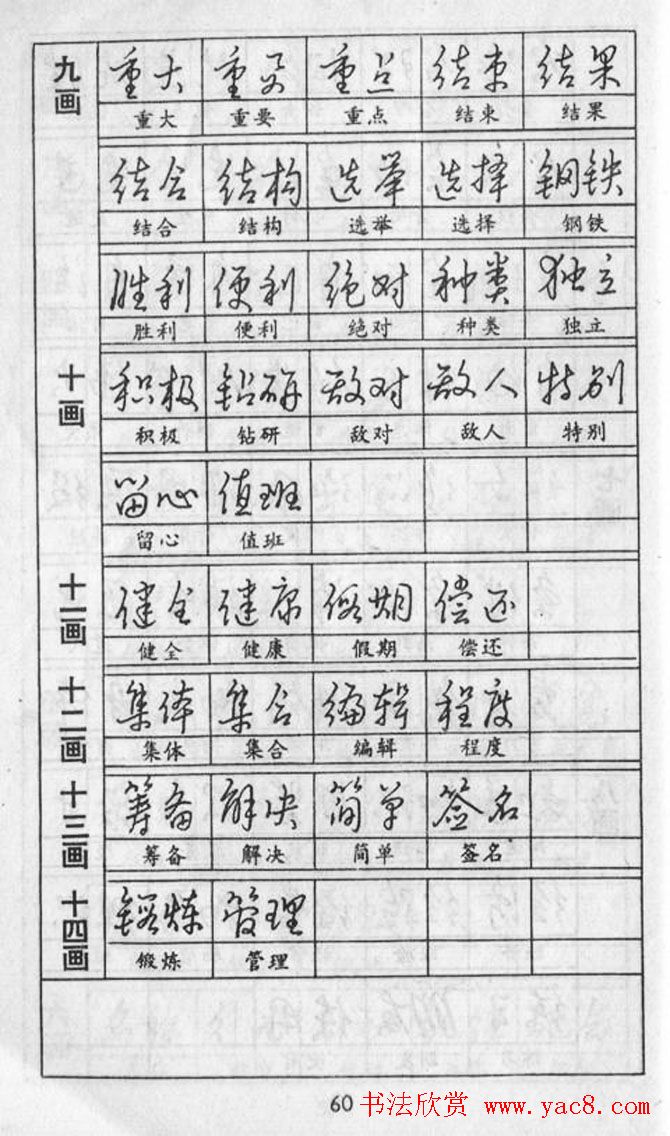 九画
重大 重要 重点 结束 结果
重大 重要 重点 结束 结果
结合 结构 选举 选择 钢铁
结合 结构 选举 选择 钢铁
胜利 便利 绝对 种类 独立
胜利 便利 绝对 种类 独立
十画
积极 钻研 敌对 敌人 特别
积极 钻研 敌对 敌人 特别
留心 值班
留心 值班
十一画
健全 健康 假期 偿还
健全 健康 假期 偿还
十二画
集体 集合 编辑 程度
集体 集合 编辑 程度
十三画
筹备 解决 简单 签名
筹备 解决 简单 签名
十四画
锻炼 管理
锻炼 管理
60 书法欣赏 www.yac8.com